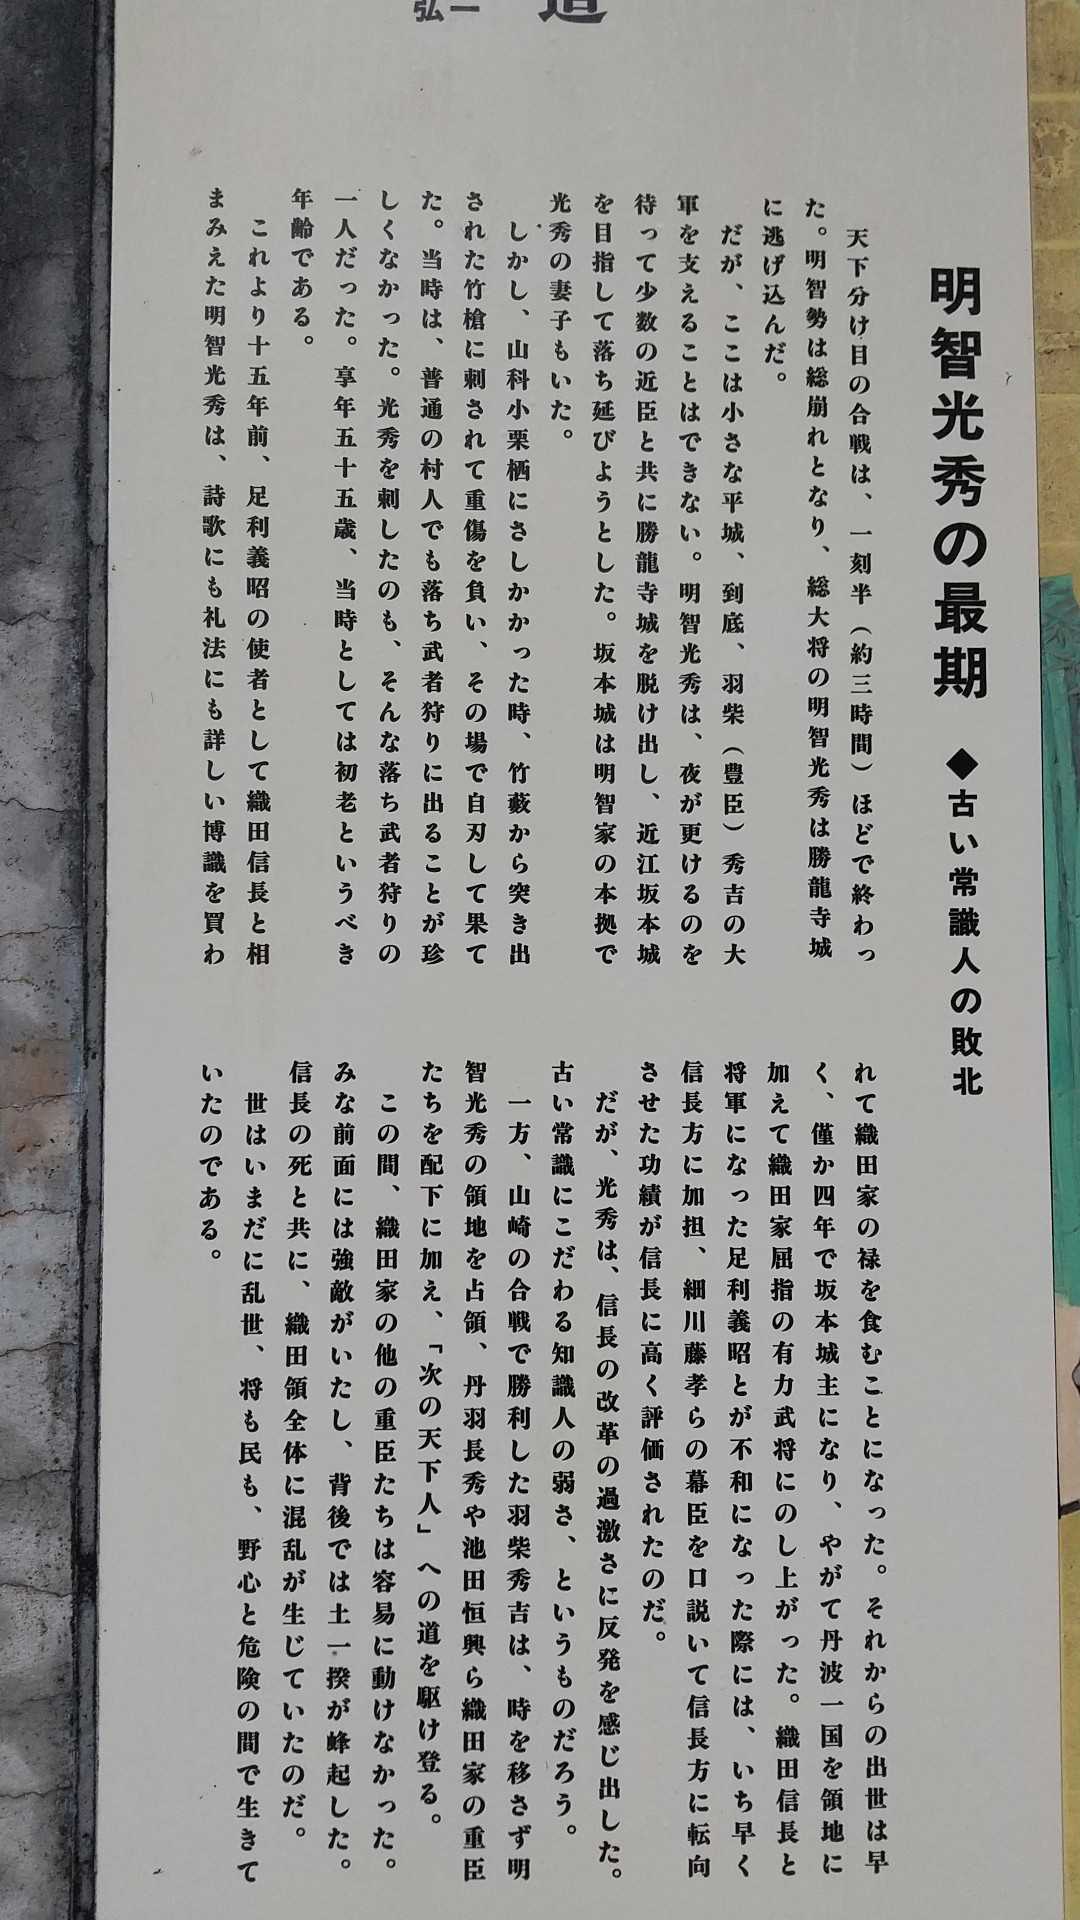 弘一
道
明智光秀の最期 ◆古い常識人の敗北
天下分け目の合戦は、一刻半（約三時間）ほどで終わっ
た。明智勢は総崩れとなり、総大将の明智光秀は勝龍寺城
に逃げ込んだ。
だが、ここは小さな平城、到底、羽柴（豊臣）秀吉の大
軍を支えることはできない。明智光秀は、夜が更けるのを
待って少数の近臣と共に勝龍寺城を脱け出し、近江坂本城
を目指して落ち延びようとした。坂本城は明智家の本拠で
光秀の妻子もいた。
しかし、山科小栗栖にさしかかった時、竹藪から突き出
された竹槍に刺されて重傷を負い、その場で自刃して果て
た。当時は、普通の村人でも落ち武者狩りに出ることが珍
しくなかった。光秀を刺したのも、そんな落ち武者狩りの
一人だった。享年五十五歳、当時としては初老というべき
年齢である。
これより十五年前、足利義昭の使者として織田信長と相
まみえた明智光秀は、詩歌にも礼法にも詳しい博識を買わ
れて織田家の禄を食むことになった。それからの出世は早
く、僅か四年で坂本城主になり、やがて丹波一国を領地に
加えて織田家屈指の有力武将にのし上がった。織田信長と
将軍になった足利義昭とが不和になった際には、いち早く
信長方に加担、細川藤孝らの幕臣を口説いて信長方に転向
させた功績が信長に高く評価されたのだ。
だが、光秀は、信長の改革の過激さに反発を感じ出した。
古い常識にこだわる知識人の弱さ、というものだろう。
一方、山崎の合戦で勝利した羽柴秀吉は、時を移さず明
智光秀の領地を占領、丹羽長秀や池田恒興ら織田家の重臣
たちを配下に加え、「次の天下人」への道を駆け登る。
この間、織田家の他の重臣たちは容易に動けなかった。
みな前面には強敵がいたし、背後では土一揆が峰起した。
信長の死と共に、織田領全体に混乱が生じていたのだ。
世はいまだに乱世、将も民も、野心と危険の間で生きて
いたのである。